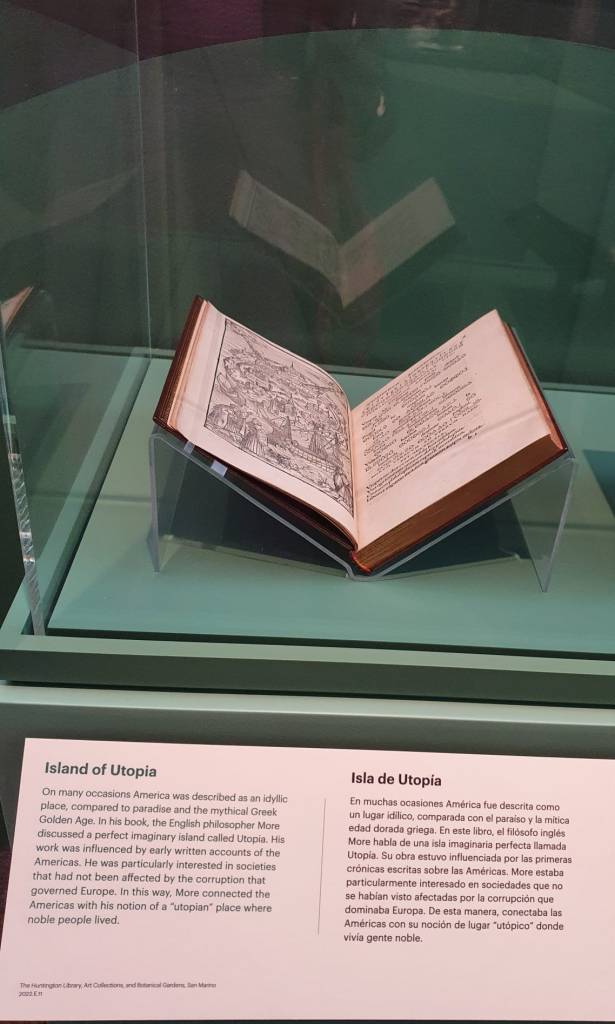 Island of Utopia
On many occasions America was described as an idyllic
place, compared to paradise and the mythical Greek
Golden Age. In his book, the English philosopher More
discussed a perfect imaginary island called Utopia. His
work was influenced by early written accounts of the
Americas. He was particularly interested in societies
that had not been affected by the corruption that
governed Europe. In this way, More connected the
Americas with his notion of a "utopian" place where
noble people lived.
The Huntington Library, Art Collections, and Botanical Gardens, San Marino
2022.E.11
Isla de Utopía
En muchas ocasiones América fue descrita como
un lugar idílico, comparada con el paraíso y la mítica
edad dorada griega. En este libro, el filósofo inglés
More habla de una isla imaginaria perfecta llamada
Utopía. Su obra estuvo influenciada por las primeras
crónicas escritas sobre las Américas. More estaba
particularmente interesado en sociedades que no
se habían visto afectadas por la corrupción que
dominaba Europa. De esta manera, conectaba las
Américas con su noción de lugar "utópico" donde
vivía gente noble.